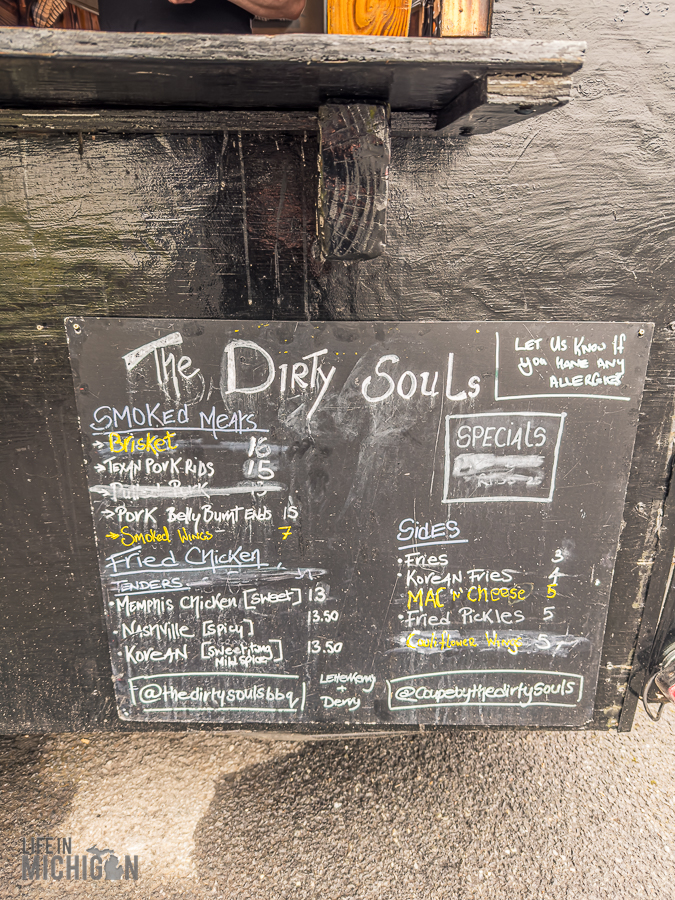 The Dirty Souls
LET US KNOW IF
YOU HAVE ANY
ALLERGIES
SMOKED MEATS
→ Brisket
→ TEXAN PORK RIBS 15
→ PORK Belly Burnt Ends 15
→ Smoked Wings 7
Fried Chicken
TENDERS
• MEMPHIS CHICKEN [SWEET] 13
• NASHVILLE [SPICY] 13.50
• KOREAN [Sweet, tang 13.50
@thedirtysoulsbbq
SPECIALS
SIDES
• FRIES 3
• KOREAN FRIES 4
MAC 'N' CHEESE 5
• FRIED PICKLES 5
• CAULIFLOWER WINGS 5
+
Derry
@coupebythedirtysouls
LIFE IN
MICHIGAN